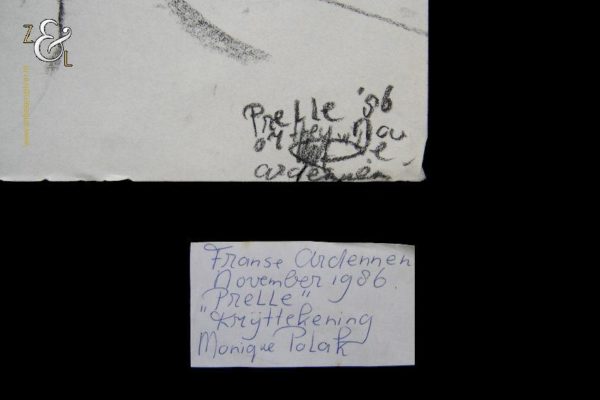 Z & L
Prelle '86
De
ardennen
Franse Ardennen
November 1986.
"Prelle"
"Krijttekening
Monique Polak